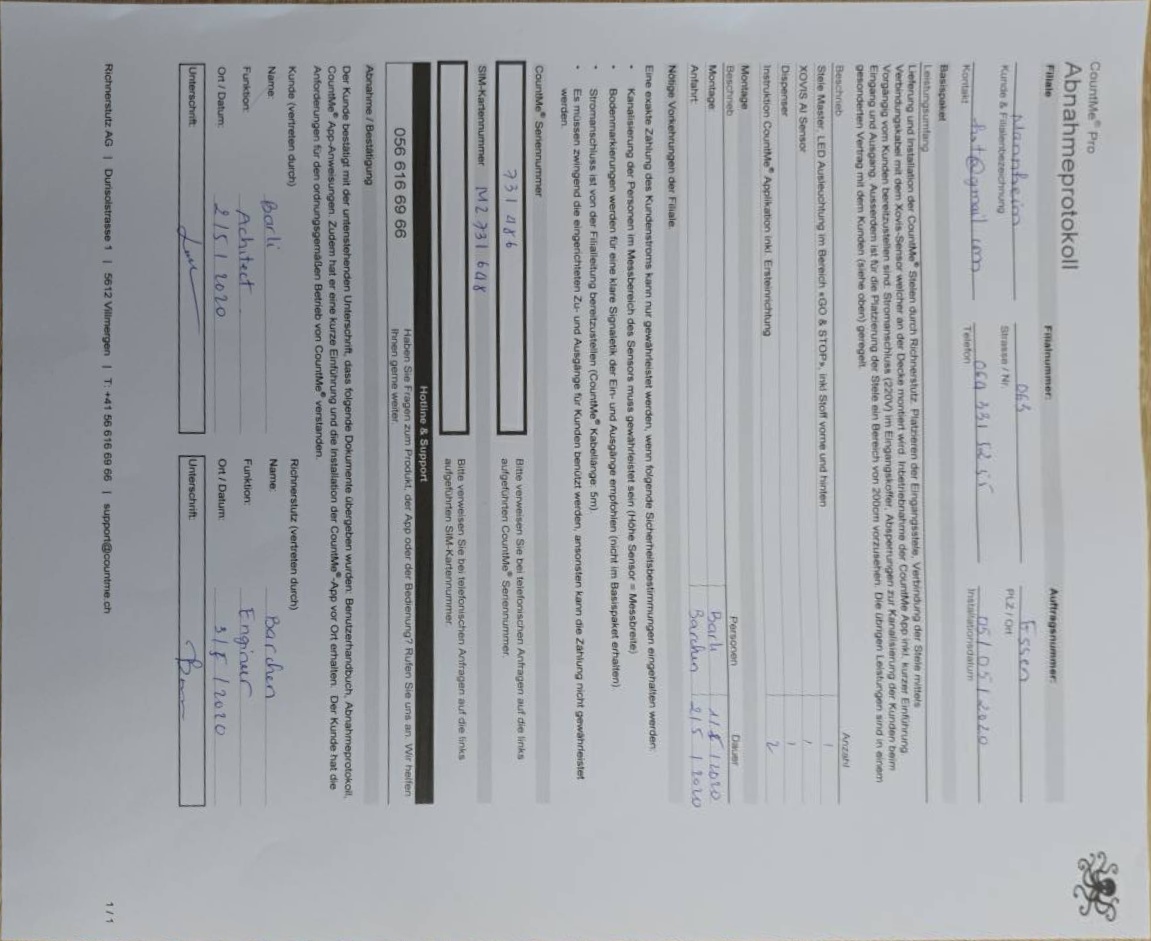 CountMe® Pro
Abnahmeprotokoll
Filiale Filialnummer: Auftragsnummer:
Mannheim 063 Essen
Kunde & Filialenbezeichnung Strasse / Nr. PLZ / Ort
hat@gmail.com 05/05/2020
Kontakt Telefon Installationsdatum
Basispaket
Leistungsumfang
Lieferung und Installation der CountMe® Stelen durch Richnerstutz. Platzieren der Eingangsstele, Verbindung der Stele mittels
Verbindungskabel mit dem Xovis-Sensor welcher an der Decke montiert wird. Inbetriebnahme der CountMe App inkl. kurzer Einführung
Vorgängig vom Kunden bereitzustellen sind: Stromanschluss (220V) im Eingangskoffer, Absperrungen zur Kanalisierung der Kunden beim
Eingang und Ausgang. Ausserdem ist für die Platzierung der Stele ein Bereich von 200cm vorzusehen. Die übrigen Leistungen sind in einem
gesonderten Vertrag mit dem Kunden (siehe oben) geregelt.
Beschrieb Anzahl
Stele Master, LED Ausleuchtung im Bereich «GO & STOP», inkl Stoff vorne und hinten 1
XOVIS AI Sensor 1
Dispenser 1
Instruktion CountMe® Applikation inkl. Ersteinrichtung 2
Montage
Beschrieb Personen Dauer
Montage Barli 1/5/2020
Anfahrt Barchen 2/5/2020
Nötige Vorkehrungen der Filiale
Eine exakte Zählung des Kundenstroms kann nur gewährleistet werden, wenn folgende Sicherheitsbestimmungen eingehalten werden:
• Kanalisierung der Personen im Messbereich des Sensors muss gewährleistet sein (Höhe Sensor = Messbreite)
• Bodenmarkierungen werden für eine klare Signaletik der Ein- und Ausgänge empfohlen (nicht im Basispaket erhalten).
• Stromanschluss ist von der Filialleitung bereitzustellen (CountMe® Kabellänge: 5m).
• Es müssen zwingend die eingerichteten Zu- und Ausgänge für Kunden benützt werden, ansonsten kann die Zählung nicht gewährleistet
werden.
CountMe® Seriennummer
731486
Bitte verweisen Sie bei telefonischen Anfragen auf die links
aufgeführten CountMe® Seriennummer.
SIM-Kartennummer M2731648
Bitte verweisen Sie bei telefonischen Anfragen auf die links
aufgeführten SIM-Kartennummer.
Hotline & Support
056 616 69 66
Haben Sie Fragen zum Produkt, der App oder der Bedienung? Rufen Sie uns an. Wir helfen
Ihnen gerne weiter.
Abnahme / Bestätigung
Der Kunde bestätigt mit der untenstehenden Unterschrift, dass folgende Dokumente übergeben wurden: Benutzerhandbuch, Abnahmeprotokoll,
CountMe® App-Anweisungen. Zudem hat er eine kurze Einführung und die Installation der CountMe®-App vor Ort erhalten. Der Kunde hat die
Anforderungen für den ordnungsgemäßen Betrieb von CountMe® verstanden.
Kunde (vertreten durch) Richnerstutz (vertreten durch)
Name: Barli Name: Barchen
Funktion: Achitect Funktion: Enginur
Ort / Datum: 2/5/2020 Ort / Datum: 3/5/2020
Unterschrift: Unterschrift:
Richnerstutz AG | Durisolstrasse 1 | 5612 Villmergen | T: +41 56 616 69 66 | support@countme.ch
1 / 1